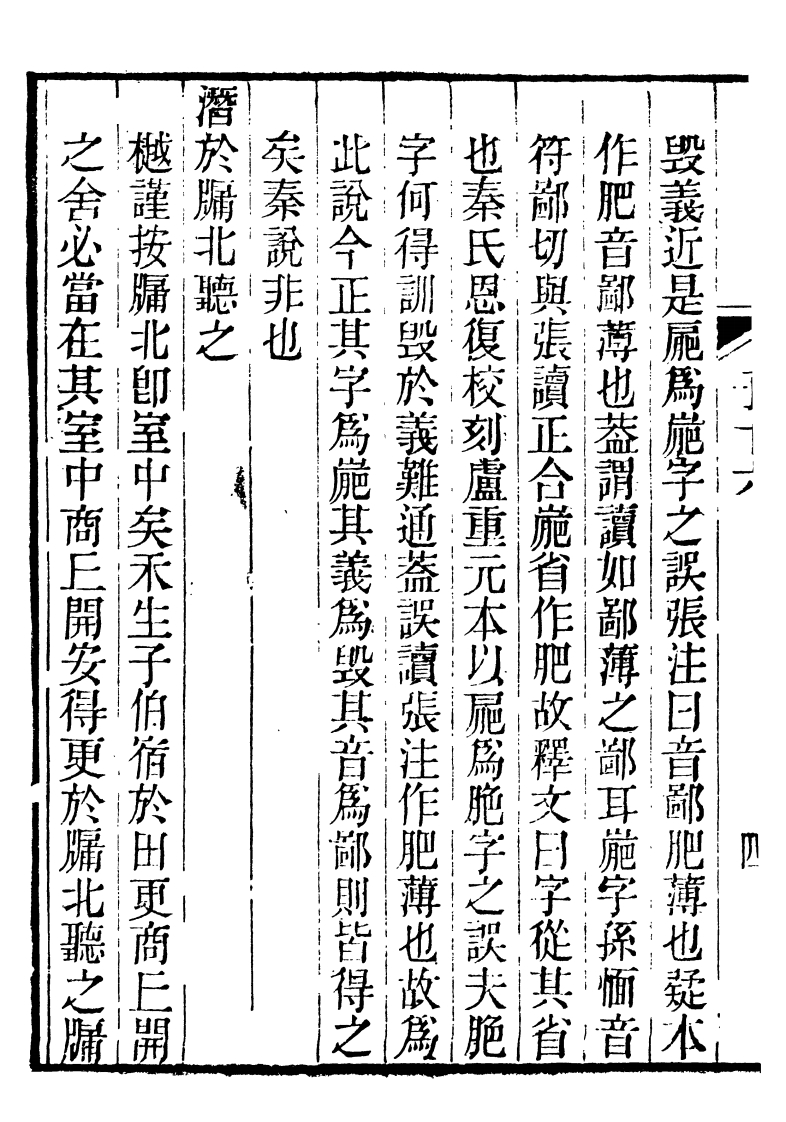 毀義近是爲字之誤張注曰音鄙肥薄也疑本
作肥音鄙薄也葢謂讀如鄙薄之鄙耳字孫愐音
符鄙切與張讀正合省作肥故釋文曰字從其省
也秦氏恩復校刻盧重元本以爲脃字之誤夫脃
字何得訓毀於義難通葢誤讀張注作肥薄也故爲
此說今正其字爲其義爲毀其音爲鄙則皆得之
矣秦說非也
潛於牖北聽之
樾謹按牖北卽室中矣禾生子伯宿於田更商丘開
之舍必當在其室中商丘開安得更於牖北聽之牖
四